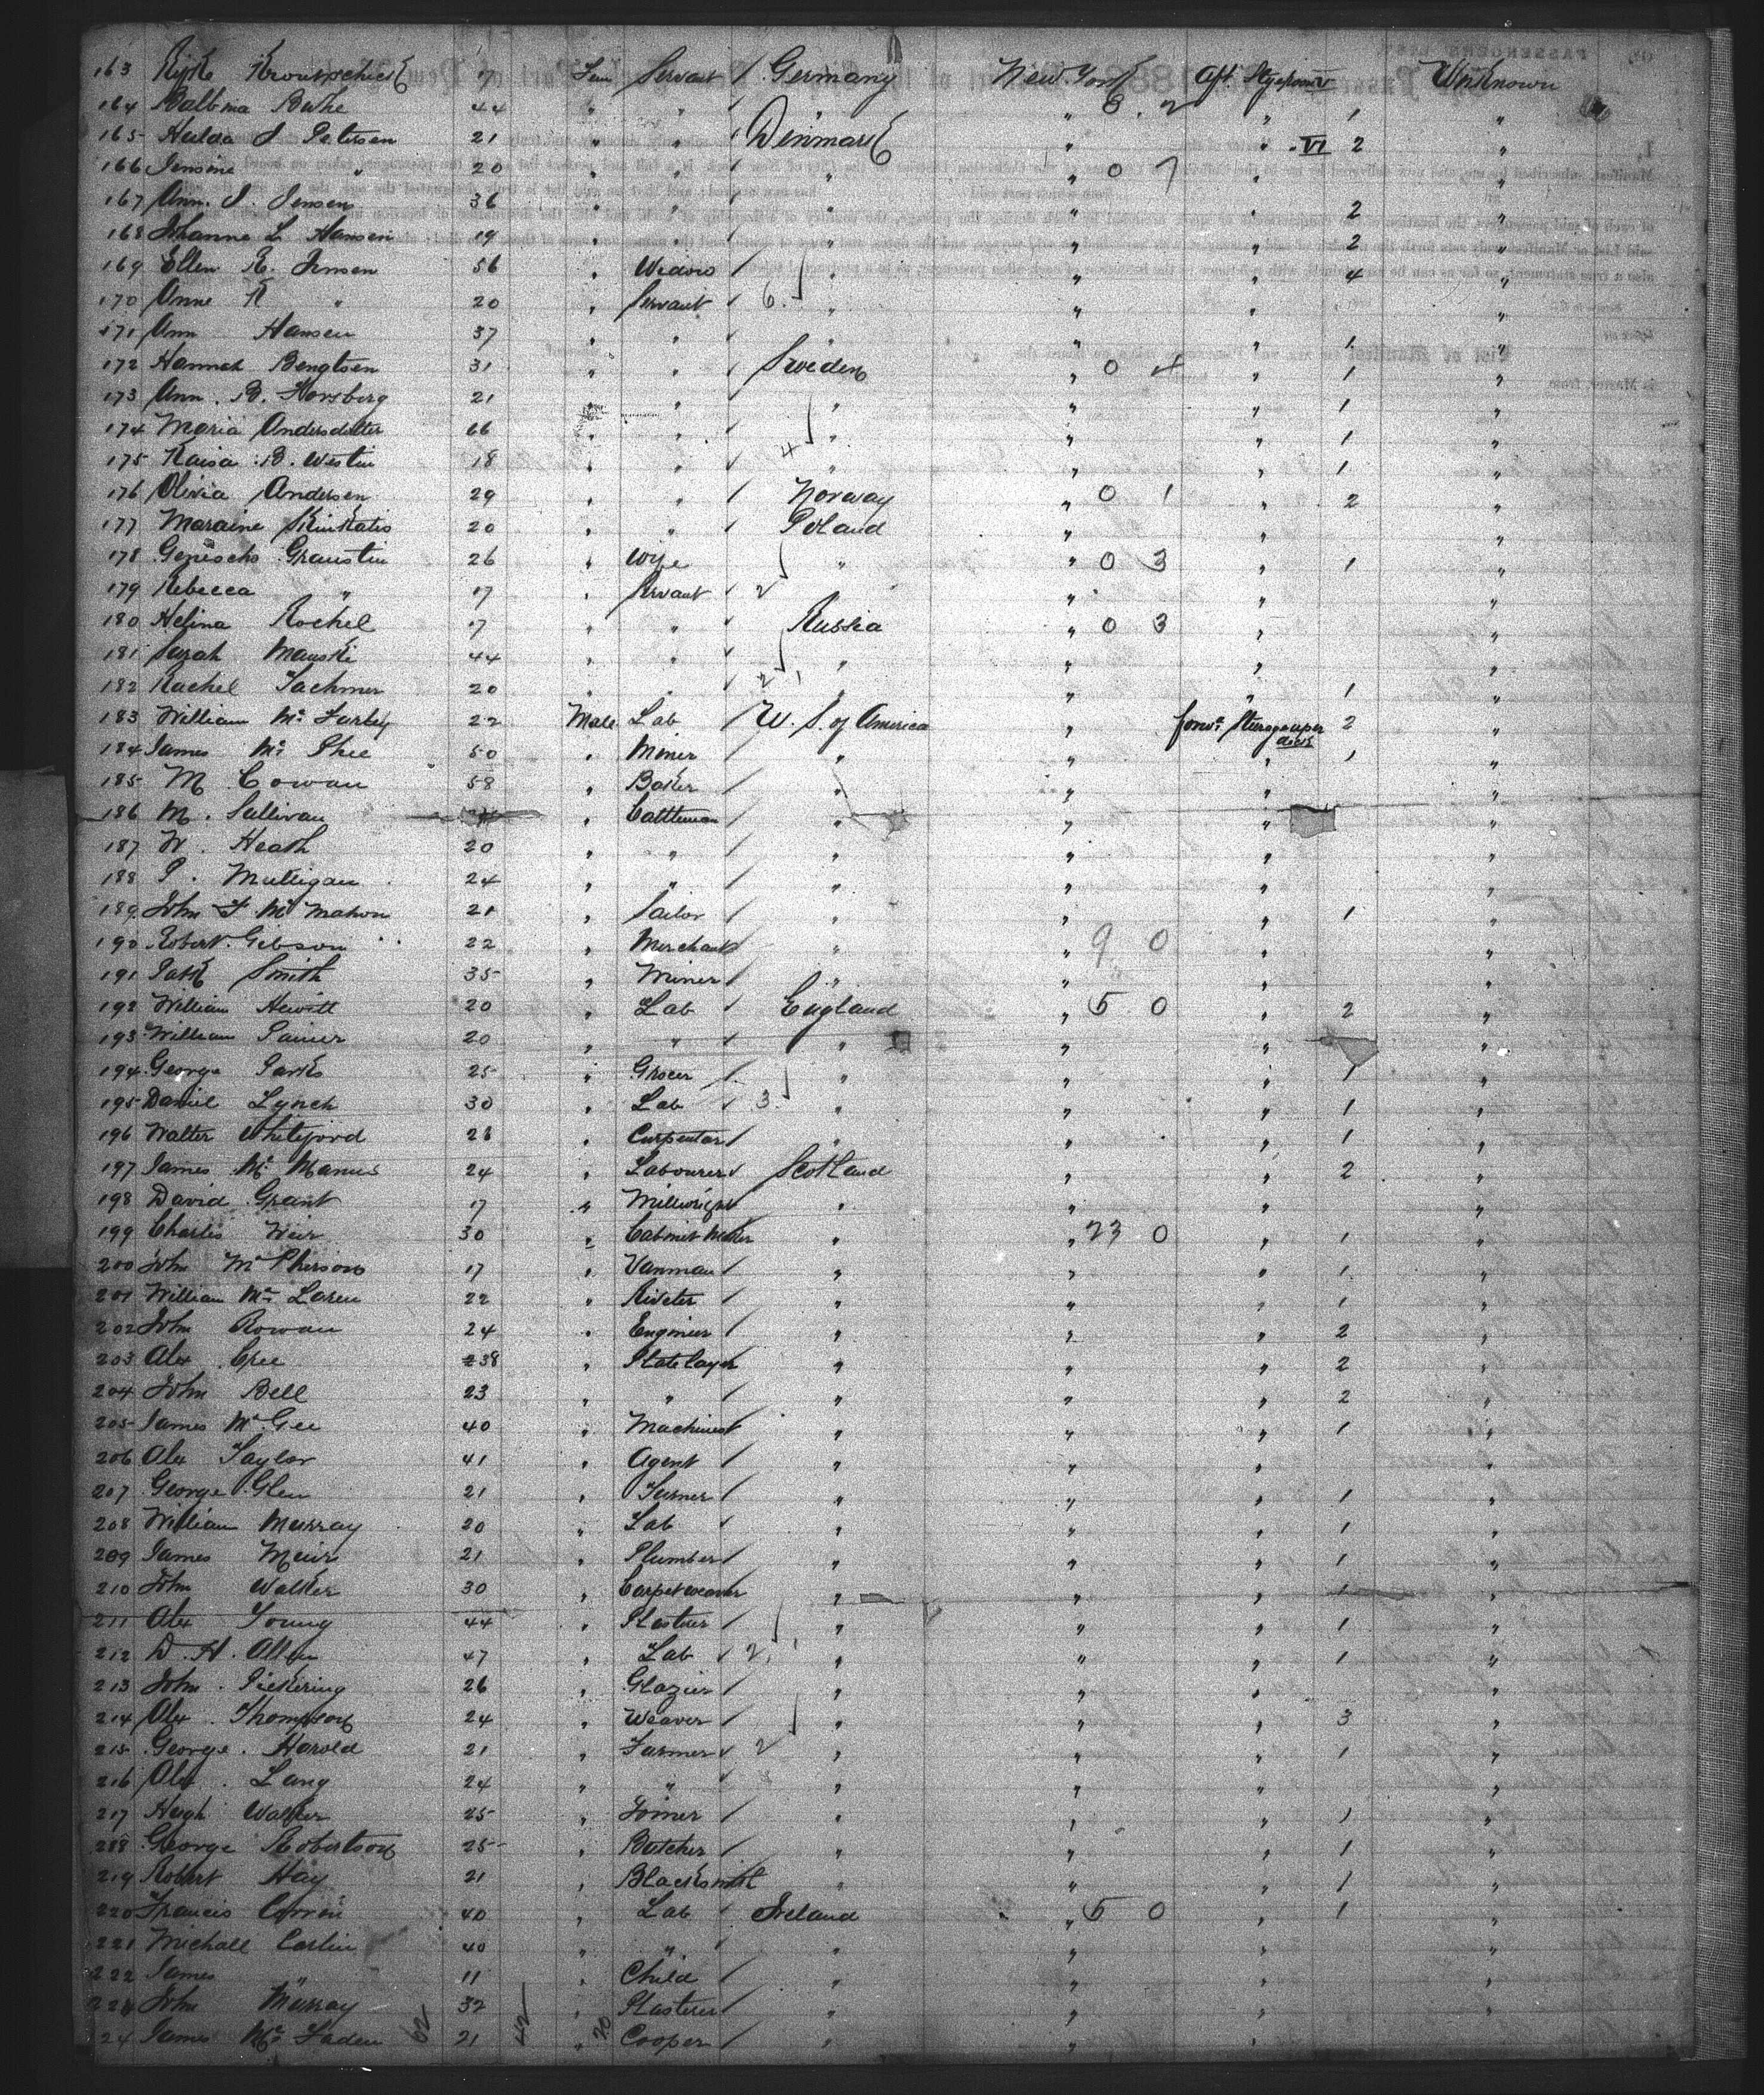 163 Fem Servant / Germany New York Aft. Unknown
164 Balbina 44 " " / " " 8. 2 " 1 "
165 Hulda J Petersen 21 " " / Denmark " " VI 2 "
166 Jensine " 20 " " / " " 0 7 " "
167 Ann. J. Jensen 36 " " / " " " 2 "
168 Johanne L Hansen 19 " " / " " " 2 "
169 Ellen K. Jensen 56 " Widow / " " " 4 "
170 Anne K " 20 " Servant / 6. " " " "
171 Ann Hansen 37 " " / " " " 1 "
172 Hannah Bengtsen 31 " " / Sweden " 0 4 " 1 "
173 Ann. B. Forsberg 21 " " / " " " 1 "
174 Maria Andersdotter 66 " " / " " " 1 "
175 Kaisa B. Westin 18 " " / 4 " " " 1 "
176 Olivia Andersen 29 " " / Norway " 0 1 " 2 "
177 20 " " / Poland " " "
178 26 " Wife / " " 0 3 " 1 "
179 Rebecca " 17 " Servant / 2 " " " "
180 Helina Rochel 17 " " / Russia " 0 3 " "
181 Sarah Mauski 44 " " / " " " "
182 Rachel 20 " " / 2 " " " 1 "
183 William Mc 22 Male Lab / U. S. of America " Forwd. Steerage upper deck 2 "
184 James Mc Phee 50 " Miner / " " " 1 "
185 M Cowan 58 " Baker / " " " "
186 M. Sullivan " Cattleman / " " " "
187 W. Heath 20 " " / " " " "
188 P. Mulligan 24 " " / " " " "
189 John F. Mc Mahon 21 " Sailor / " " " 1 "
190 Robert Gibson 22 " Merchant / " " 9 0 " "
191 Patk Smith 35 " Miner / " " " "
192 William Hewitt 20 " Lab / England " 5 0 " 2 "
193 William 20 " " / " " " "
194 George Parks 25 " Grocer / " " " 1 "
195 Daniel Lynch 30 " Lab / 3. " " " 1 "
196 Walter Whiteford 26 " Carpenter / " " " 1 "
197 James Mc Manus 24 " Labourer / Scotland " " 2 "
198 David Grant 17 " Millwright " " " "
199 Charles Weir 30 " Cabinet Maker " " 23 0 " 1 "
200 John Mc Pherson 17 " Vanman / " " " 1 "
201 William Mc Laren 22 " Riveter / " " " 1 "
202 John Rowan 24 " Engineer / " " " 2 "
203 Alex Cree 38 " Platelayer " " " 2 "
204 John Bell 23 " " / " " " 2 "
205 James Mc Gee 40 " Machinest " " " 1 "
206 Alex Taylor 41 " Agent / " " " "
207 George Glen 21 " Turner / " " " 1 "
208 William Murray 20 " Lab / " " " 1 "
209 James Muir 21 " Plumber / " " " 1 "
210 John Walker 30 " Carpet weaver " " " 1 "
211 Alex Young 44 " Plasterer / " " " 1 "
212 D. H. Allan 47 " Lab / 2 " " " 1 "
213 John Pickering 26 " Glazier / " " " "
214 Alex. Thompson 24 " Weaver / " " " 3 "
215 George. Harold 21 " Farmer / 2 " " " 1 "
216 Alex. Lang 24 " " / " " " "
217 Hugh Walker 25 " Joiner / " " " 1 "
218 George Robertson 25 " Butcher / " " " 1 "
219 Robert Hay 21 " Blacksmith " " " 1 "
220 Francis 40 " Lab / Ireland " 5 0 " 1 "
221 Michall Carlin 40 " " / " " " "
222 James " 11 " Child / " " " "
John Murray 32 " Plasterer / " " " "
24 James Mc Faden 62 21 42 20 " Cooper / " " " "